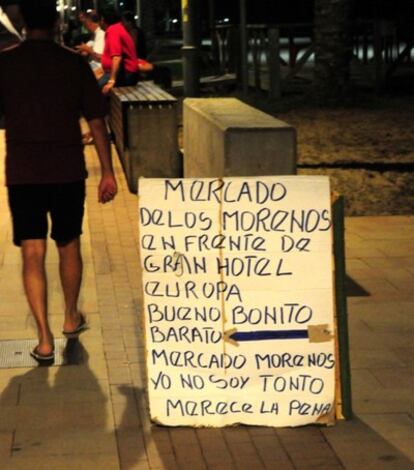 MERCADO
DE LOS MORENOS
EN FRENTE DE
GRAN HOTEL
EUROPA
BUENO BONITO
BARATO
MERCADO MORENOS
YO NO SOY TONTO
MERECE LA PENA